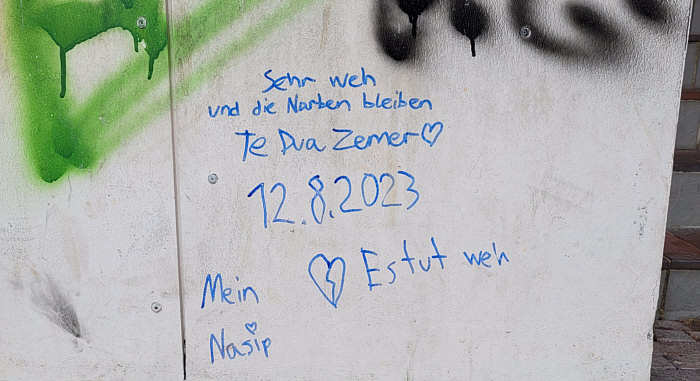 Sehr weh
und die Narben bleiben
Te Dua Zemer♡
12.8.2023
Es tut weh
Mein
Nasip